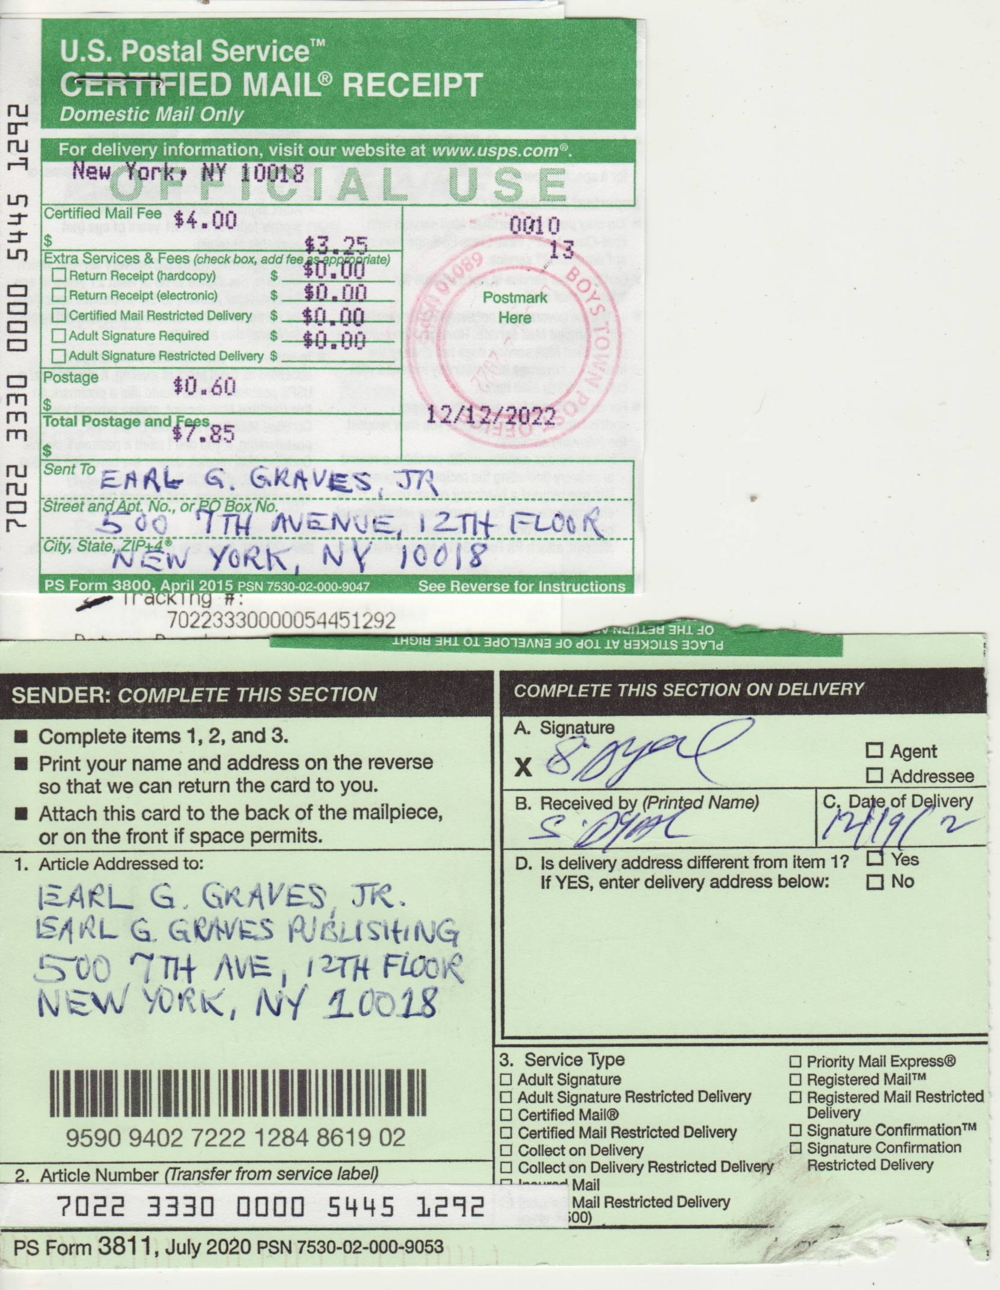 U.S. Postal Service™
CERTIFIED MAIL® RECEIPT
Domestic Mail Only
For delivery information, visit our website at www.usps.com®.
New York, NY 10018
OFFICIAL USE
Certified Mail Fee $4.00
$
$3.25
0010
13
Extra Services & Fees (check box, add fee as appropriate)
Return Receipt (hardcopy) $ $0.00
Return Receipt (electronic) $ $0.00
Certified Mail Restricted Delivery $ $0.00
Adult Signature Required $ $0.00
Adult Signature Restricted Delivery $
Postmark
Here
BOYS TOWN POST OFFICE
Postage
$0.60
$
12/12/2022
Total Postage and Fees
$7.85
$
Sent To EARL G. GRAVES, JR
Street and Apt. No., or PO Box No.
500 7TH AVENUE, 12TH FLOOR
City, State, ZIP+4®
NEW YORK, NY 10018
PS Form 3800, April 2015 PSN 7530-02-000-9047 See Reverse for Instructions
7022 3330 0000 5445 1292
Tracking #:
70223330000054451292
PLACE STICKER AT TOP OF ENVELOPE TO THE RIGHT
OF THE RETURN
SENDER: COMPLETE THIS SECTION
Complete items 1, 2, and 3.
Print your name and address on the reverse
so that we can return the card to you.
Attach this card to the back of the mailpiece,
or on the front if space permits.
1. Article Addressed to:
EARL G. GRAVES, JR.
EARL G. GRAVES PUBLISHING
500 7TH AVE, 12TH FLOOR
NEW YORK, NY 10018
9590 9402 7222 1284 8619 02
2. Article Number (Transfer from service label)
7022 3330 0000 5445 1292
PS Form 3811, July 2020 PSN 7530-02-000-9053
COMPLETE THIS SECTION ON DELIVERY
A. Signature
X
Agent
Addressee
B. Received by (Printed Name)
S. Dyal
C. Date of Delivery
12/19/2
D. Is delivery address different from item 1? Yes
If YES, enter delivery address below: No
3. Service Type
Adult Signature
Adult Signature Restricted Delivery
Certified Mail®
Certified Mail Restricted Delivery
Collect on Delivery
Collect on Delivery Restricted Delivery
Mail
Mail Restricted Delivery
500)
Priority Mail Express®
Registered Mail™
Registered Mail Restricted
Delivery
Signature Confirmation™
Signature Confirmation
Restricted Delivery